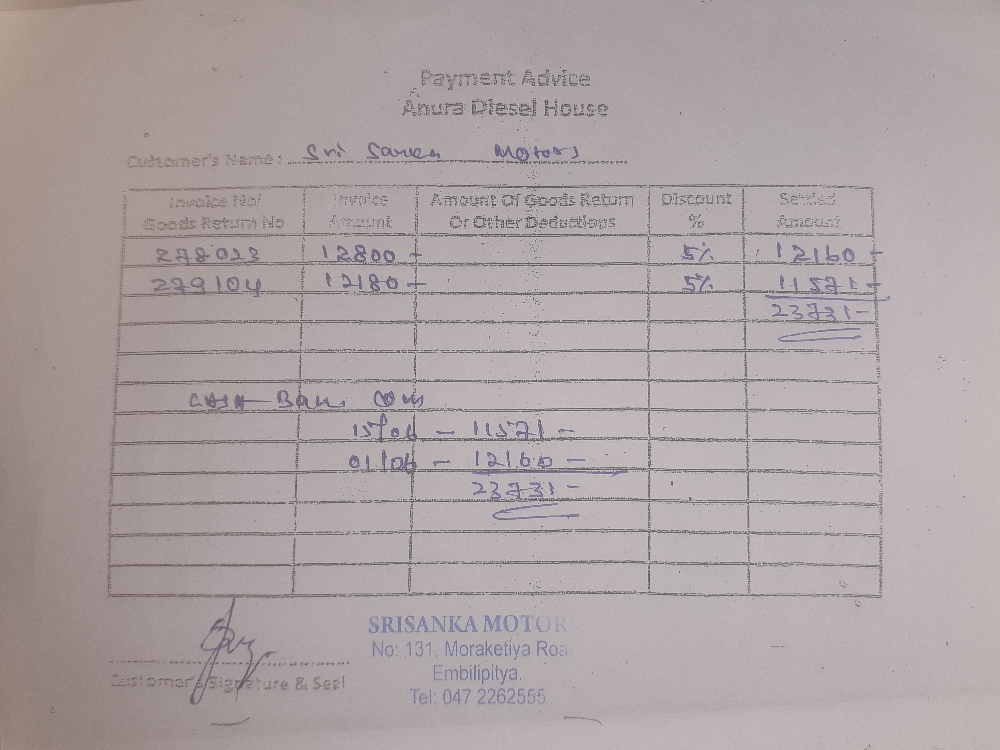 Payment Advice
Anura Diesel House
Customer's Name : Sri Motors
Invoice No/ Goods Return No Invoice Amount Amount Of Goods Return Or Other Deductions Discount % Settled Amount
278023 12800 - 5% 12160 -
279104 12180 - 5% 11571 -
23731 -
CASH
15/06 - 11571 -
01/06 - 12160 -
23731 -
SRISANKA MOTORS
No: 131, Moraketiya Roa
Embilipitya.
Tel: 047 2262555
Customer's Signature & Seal